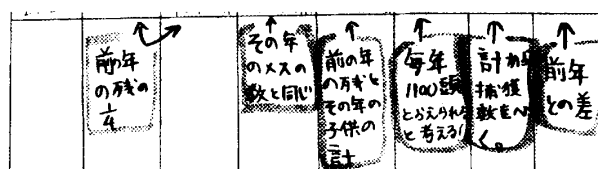 前の年
の残の
1/4
その年
のメスの
数と同じ
前の年
の残と
その年の
子供の
計
毎年
1100頭
と考える
計から
捕獲
数をへ
く。
前年
との差